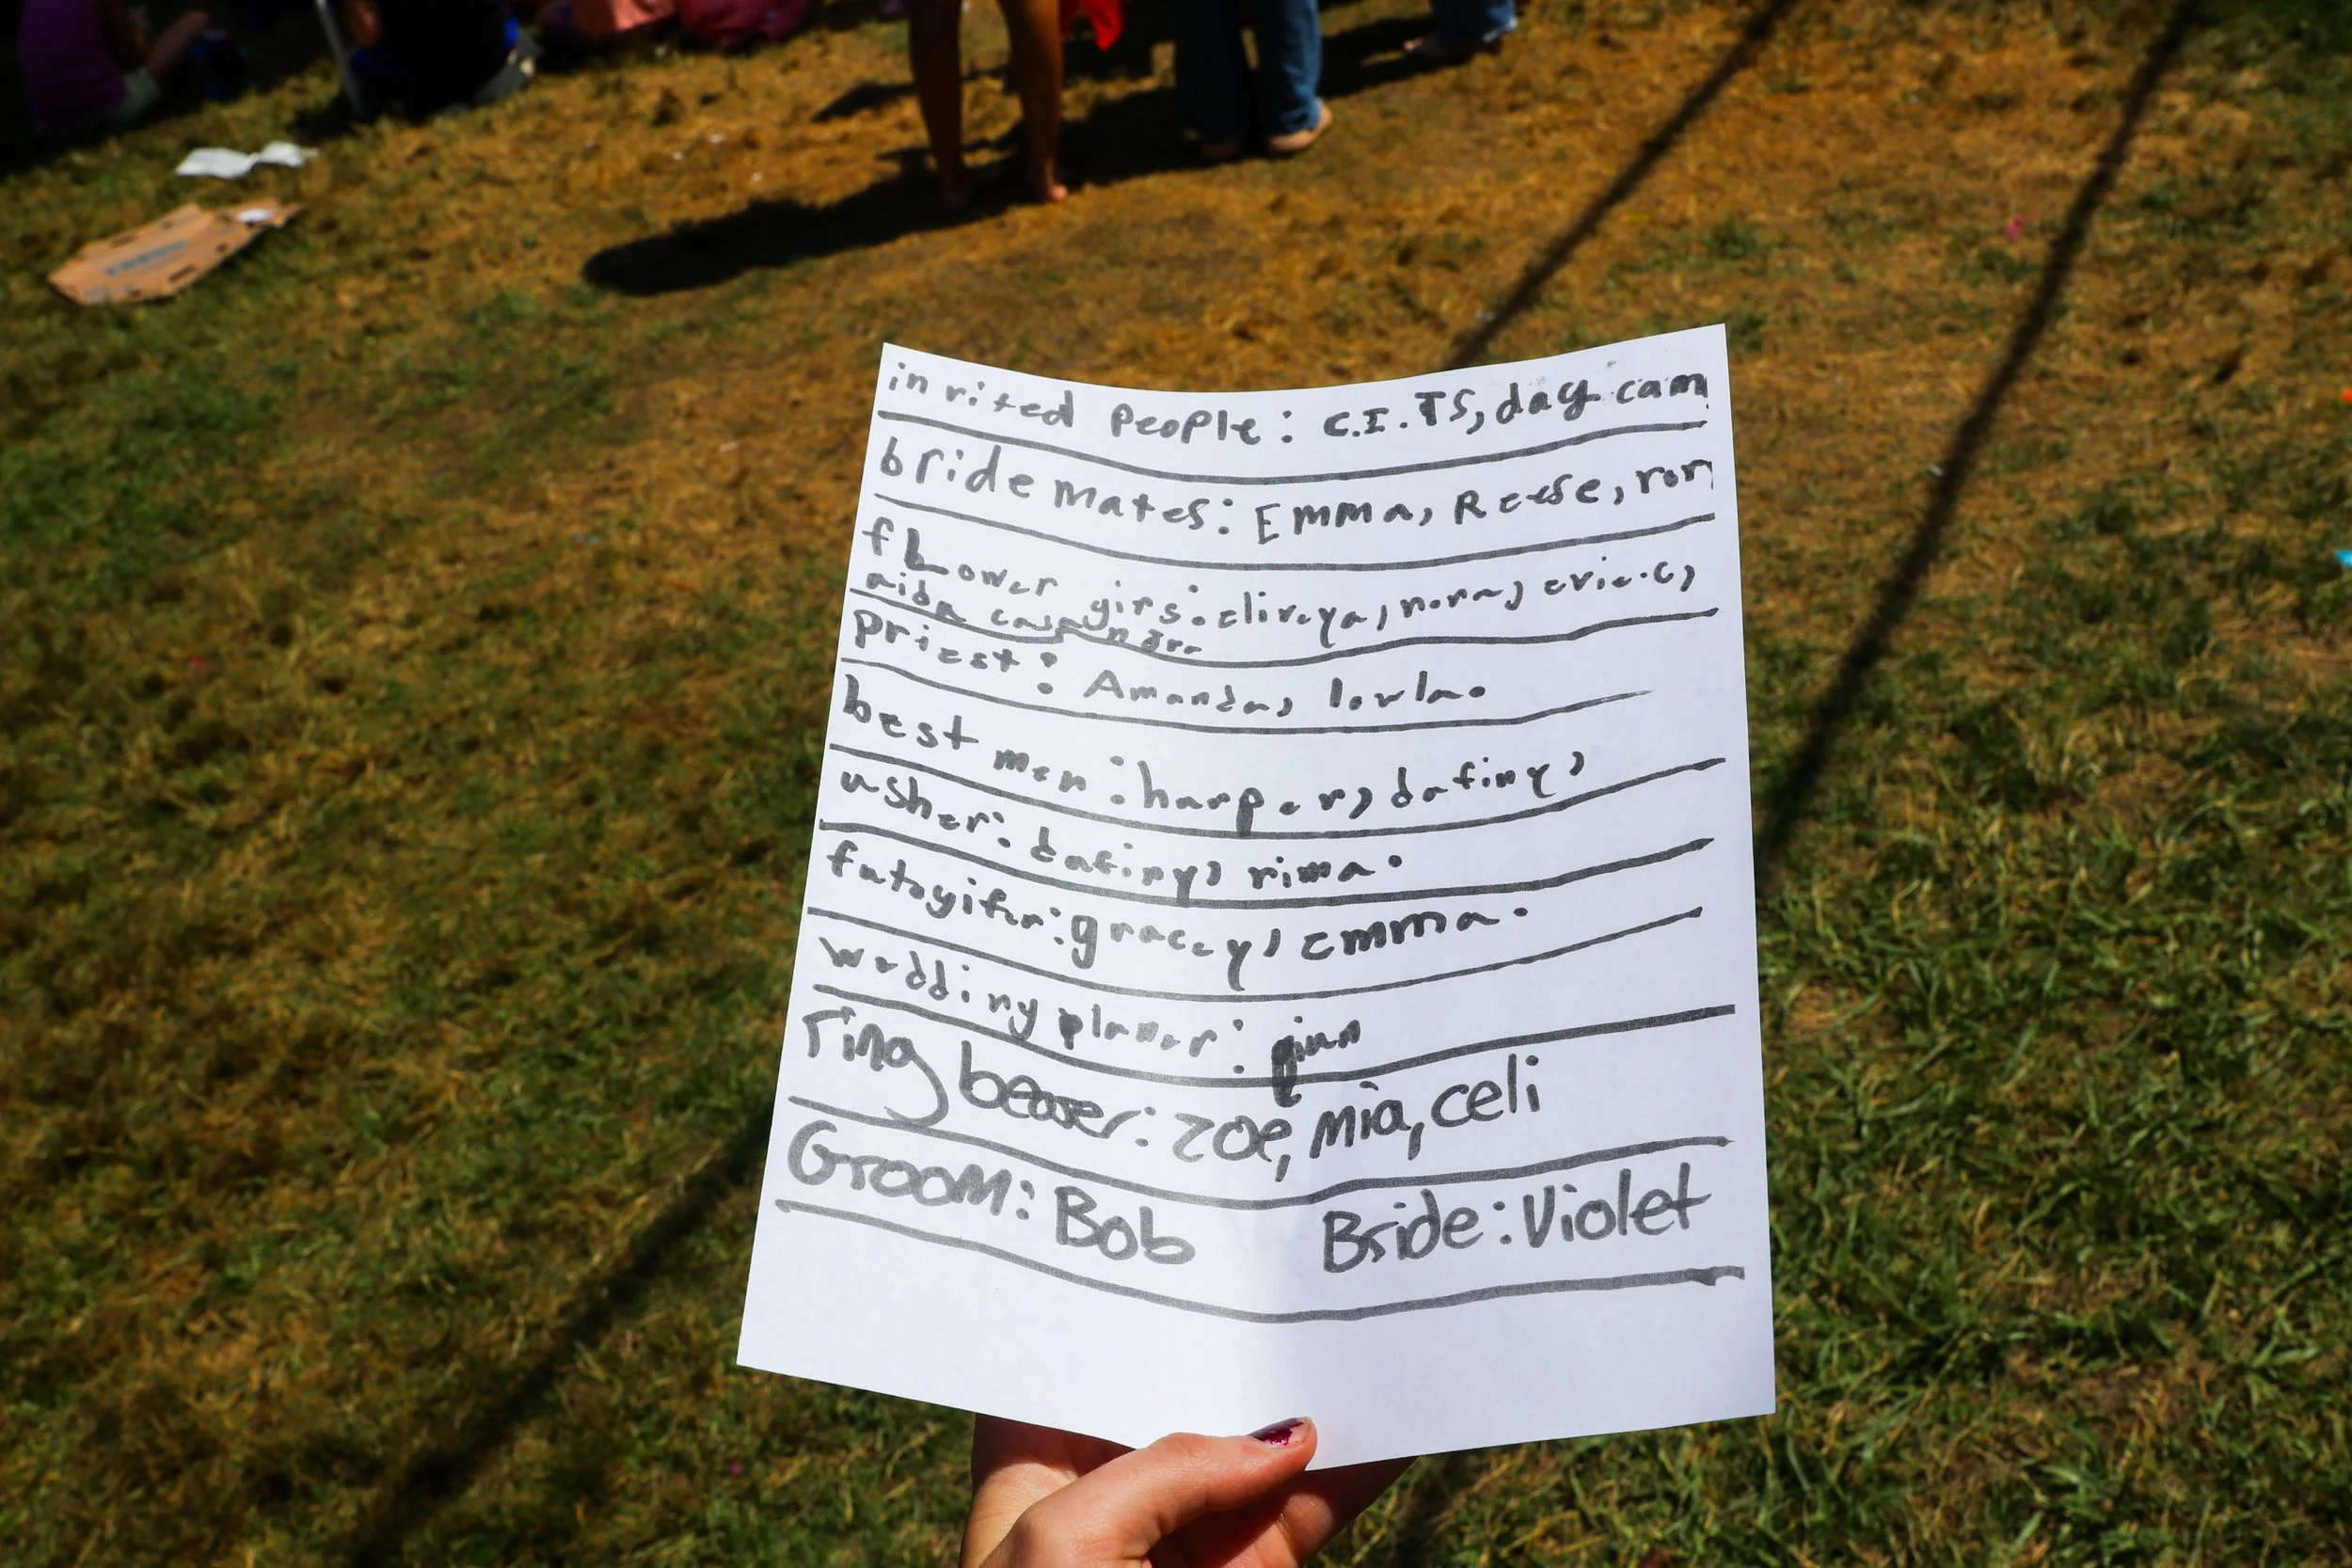 invited people: C.I.TS, day cam
bride mates: Emma, Reese, ror
flower girs: elireya, nora, evie.c,
aida casandra
priest: Amanda, lowla.
best men: harper, dafiny,
usher: dafiny, rima.
fatogifer: gracey, emma.
wedding planer: giun
ring bearer: zoe, mia, celi
Groom: Bob Bride: Violet